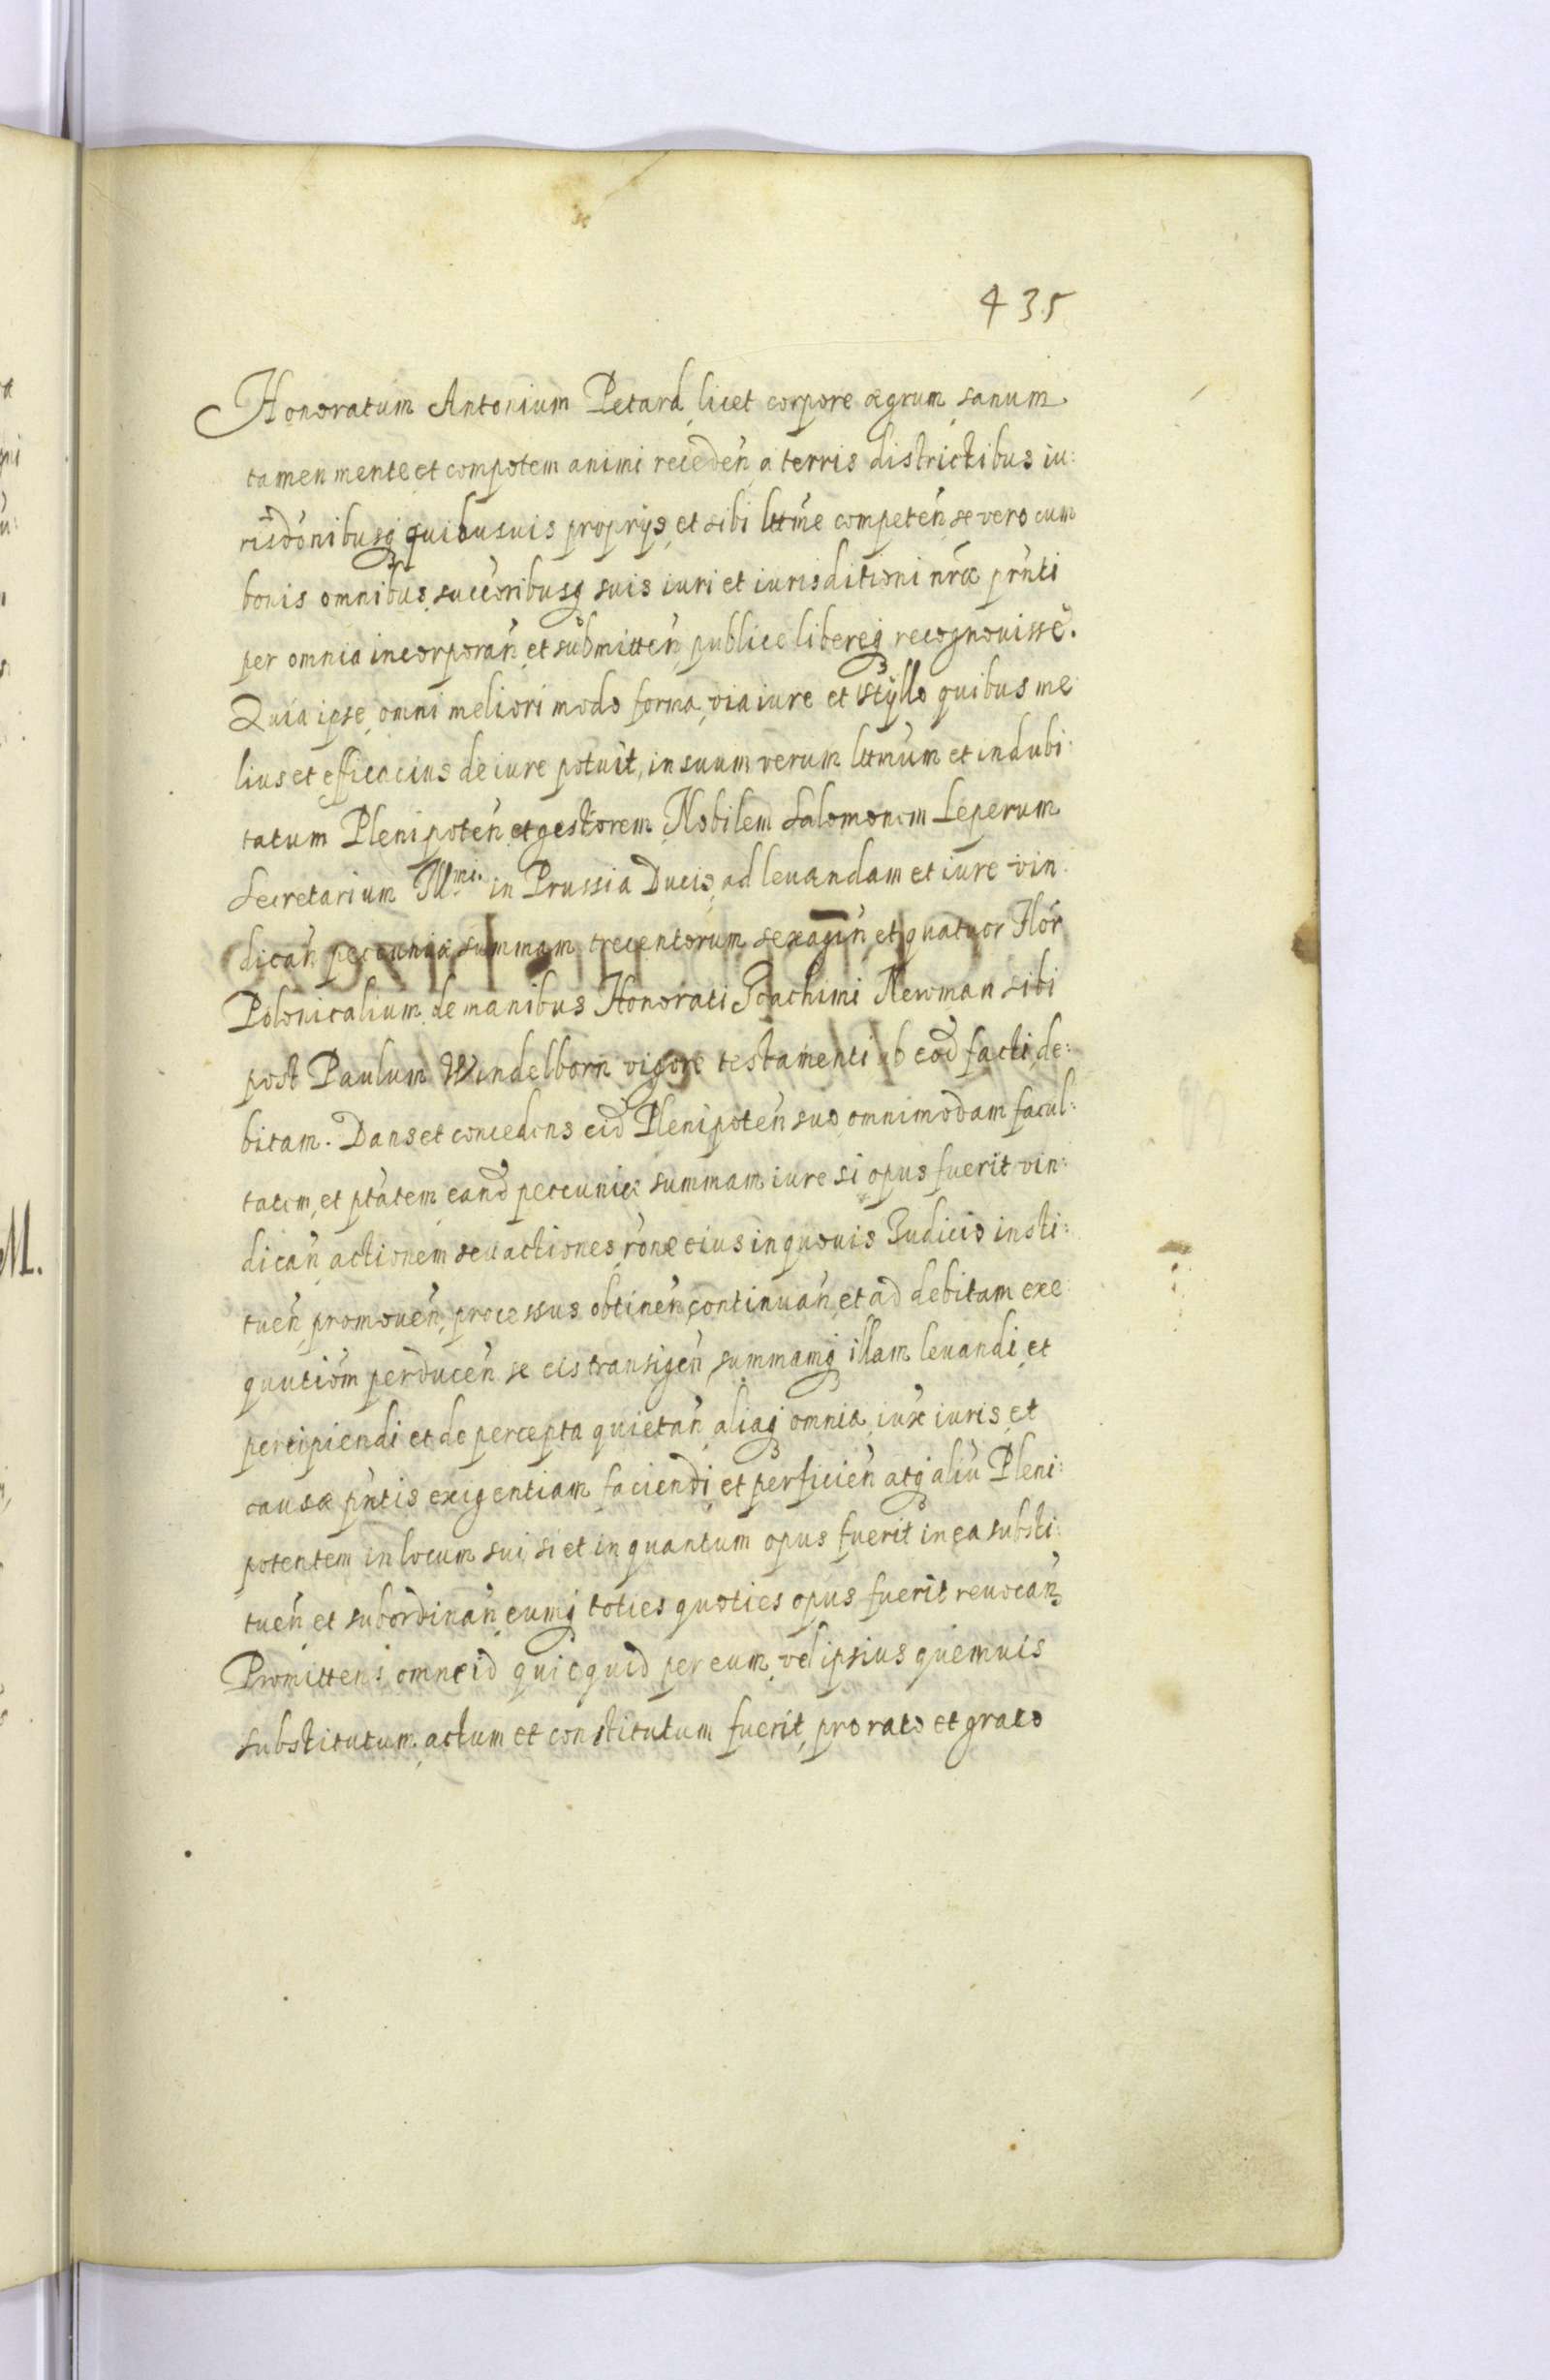 435
Honoratum Antonium Petard, licet corpore ægrum, sanum
tamen mente, et compotem animi receden̄ a terris districtibus iu:
risdōnibusq quibusuis proprijs, et sibi lttme competen̄ se vero cum
bonis omnibus, succoribusq suis iuri et iurisditioni nræ prnti
per omnia incorporan̄, et submitten̄, publice libereq recognouisse.
Quia ipse, omni meliori modo forma, via iure et styllo quibus me
lius et efficacius de iure potuit, in suum verum lttmum et indubi:
tatum Plenipoten̄, et gestorem, Nobilem Salomonem Leperum
Secretarium Illmi. in Prussia Ducis, ad leuandam et iure vin:
dican̄ pecuniæ summam trecentorum, sexagin̄, et quatuor Flor̄
Polonicalium de manibus Honorati Joachimi Newman sibi
post Paulum Wendelborn vigore testamenti ab eod facti, de:
bitam. Dans et concedens eid Plenipoten̄ suo, omnimodam facul:
tatem, et ptatem, eand pecuniæ summam iure si opus fuerit vin:
dican̄, actionem seu actiones, rōne eius in quouis Judicio insti:
tuen̄, promouen̄, processus obtinen̄, continuan̄, et ad debitam exe
qutiōm perducen̄ se eis transigen̄, summamq illam leuandi, et
percipiendi et de percepta quietan̄, aliaq omnia, iux iuris, et
causæ pntis exigentiam faciendi, et perficien̄ atq aliū Pleni:
potentem in locum sui, si et in quantum opus fuerit in ea substi:
tuen̄, et subordinan̄, eumq toties quoties opus fuerit reuocan̄
Promittens omne id quicquid per eum, vel ipsius quemuis
substitutum, actum et constitutum fuerit, pro rato et grato